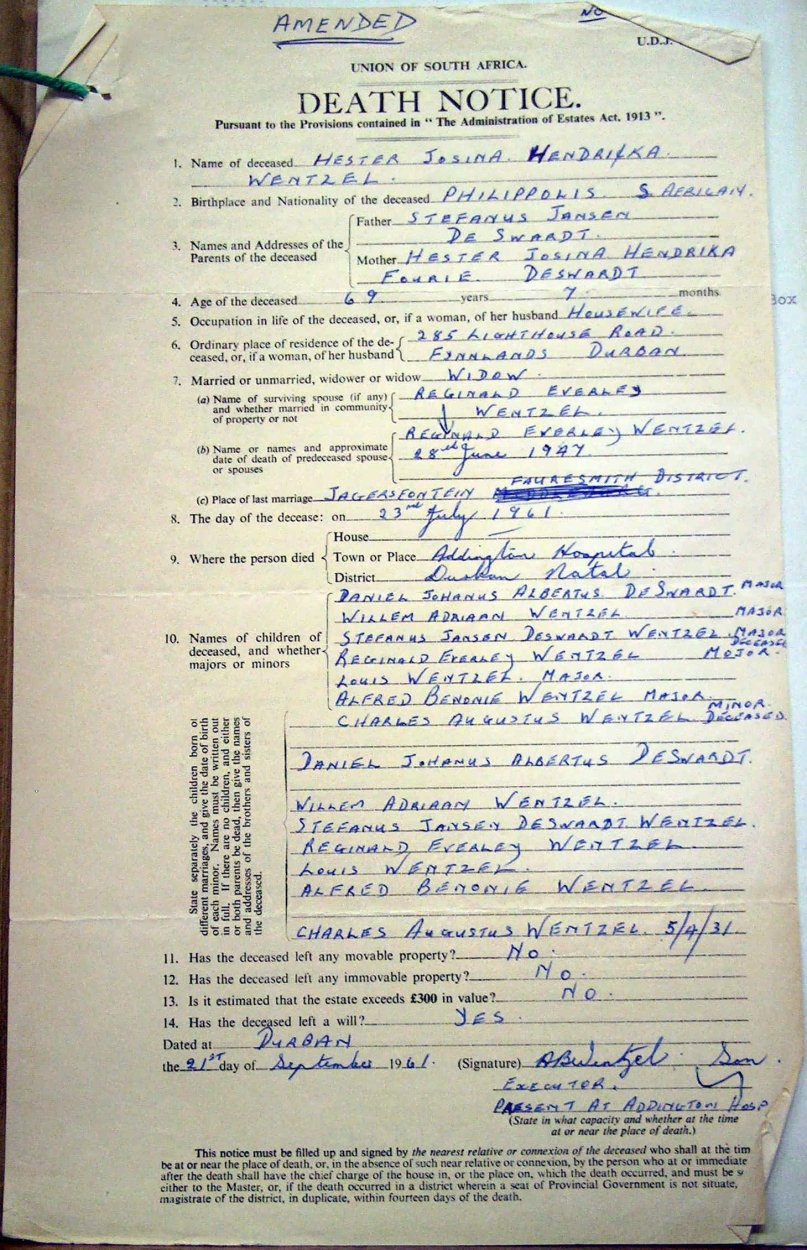 AMENDED
NO
U.D.J.
UNION OF SOUTH AFRICA.
DEATH NOTICE.
Pursuant to the Provisions contained in “ The Administration of Estates Act, 1913 ”.
1. Name of deceased HESTER JOSINA HENDRIKA
WENTZEL.
2. Birthplace and Nationality of the deceased PHILIPPOLIS S. AFRICAN.
3. Names and Addresses of the Parents of the deceased
Father STEFANUS JANSEN
DE SWARDT.
Mother HESTER JOSINA HENDRIKA
FOURIE DESWARDT
4. Age of the deceased 69 years 7 months
Box
5. Occupation in life of the deceased, or, if a woman, of her husband HOUSEWIFE
6. Ordinary place of residence of the de- 285 LIGHTHOUSE ROAD.
ceased, or, if a woman, of her husband FYNNLANDS DURBAN.
7. Married or unmarried, widower or widow WIDOW.
(a) Name of surviving spouse (if any) REGINALD EVERLEY
and whether married in community WENTZEL.
of property or not
REGINALD EVERLEY WENTZEL.
(b) Name or names and approximate
date of death of predeceased spouse 28 June 1947
or spouses
FAURESMITH DISTRICT.
(c) Place of last marriage JAGERSFONTEIN
8. The day of the decease: on 23rd July 1961.
9. Where the person died
House —
Town or Place Addington Hospital.
District Durban Natal.
10. Names of children of
deceased, and whether
majors or minors
DANIEL JOHANUS ALBERTUS DESWARDT. MAJOR
WILLEM ADRIAAN WENTZEL MAJOR
STEFANUS JANSEN DESWARDT WENTZEL MAJOR
DECEASED
REGINALD EVERLEY WENTZEL MOJOR.
LOUIS WENTZEL. MAJOR.
ALFRED BENONIE WENTZEL MAJOR.
MINOR.
CHARLES AUGUSTUS WENTZEL DECEASED.
State separately the children born of
different marriages, and give the date of birth
of each minor. Names must be written out
in full. If there are no children, and either
or both parents be dead, then give the names
and addresses of the brothers and sisters of
the deceased.
DANIEL JOHANUS ALBERTUS DESWARDT.
WILLEM ADRIAAN WENTZEL.
STEFANUS JANSEN DESWARDT WENTZEL.
REGINALD EVERLEY WENTZEL
LOUIS WENTZEL.
ALFRED BENONIE WENTZEL
CHARLES AUGUSTUS WENTZEL. 5/4/31.
11. Has the deceased left any movable property? NO.
12. Has the deceased left any immovable property? NO.
13. Is it estimated that the estate exceeds £300 in value? NO.
14. Has the deceased left a will? YES.
Dated at DURBAN
the 21ST day of September 1961. (Signature) ABWentzel. Son.
EXECUTOR.
PRESENT AT ADDINGTON HOSP
(State in what capacity and whether at the time
at or near the place of death.)
This notice must be filled up and signed by the nearest relative or connexion of the deceased who shall at the tim
be at or near the place of death, or, in the absence of such near relative or connexion, by the person who at or immediate
after the death shall have the chief charge of the house in, or the place on, which the death occurred, and must be s
either to the Master, or, if the death occurred in a district wherein a seat of Provincial Government is not situate,
magistrate of the district, in duplicate, within fourteen days of the death.